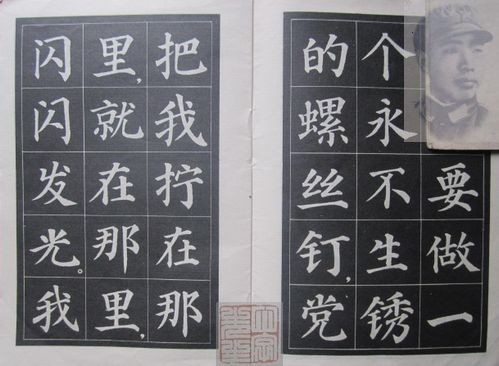 要做一
个永不生锈
的螺丝钉，党
把我拧在那
里，就在那里，
闪闪发光。我